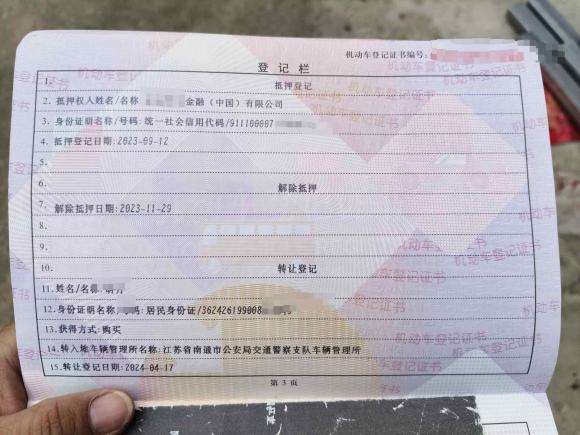 机动车登记证书编号:
登记栏
1. 抵押登记
2. 抵押权人姓名/名称 金融（中国）有限公司
3. 身份证明名称/号码:统一社会信用代码/911100007
4. 抵押登记日期:2023-09-12
5.
6. 解除抵押
7. 解除抵押日期:2023-11-29
8.
9.
10. 转让登记
11. 姓名/名称
12. 身份证明名称/号码:居民身份证/362426199008
13. 获得方式:购买
14. 转入地车辆管理所名称:江苏省南通市公安局交通警察支队车辆管理所
15. 转让登记日期:2024-04-17
第 3 页